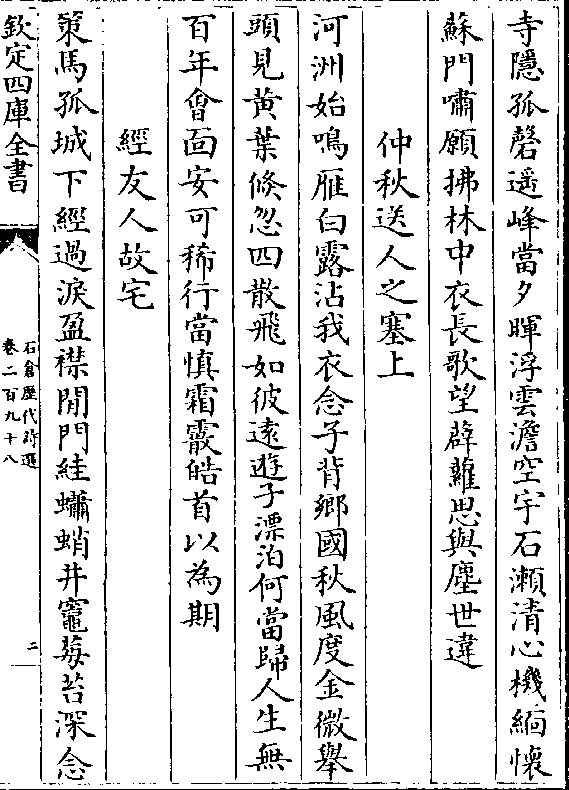 寺隱孤磬遥峰當夕暉浮雲澹空宇石瀨清心機緬懐
蘇門嘯願拂林中衣長歌望薜蘿思與塵世違
仲秋送人之塞上
河洲始鳴雁白露沾我衣念子背鄉國秋風度金微舉
頭見黄葉倐忽四散飛如彼遠遊子漂泊何當歸人生無
百年會面安可稀行當慎霜霰皓首以為期
經友人故宅
策馬孤城下經過淚盈襟閒門絓蠨蛸井竈莓苔深念
欽定四庫全書
石倉歷代詩選
卷二百九十八
二